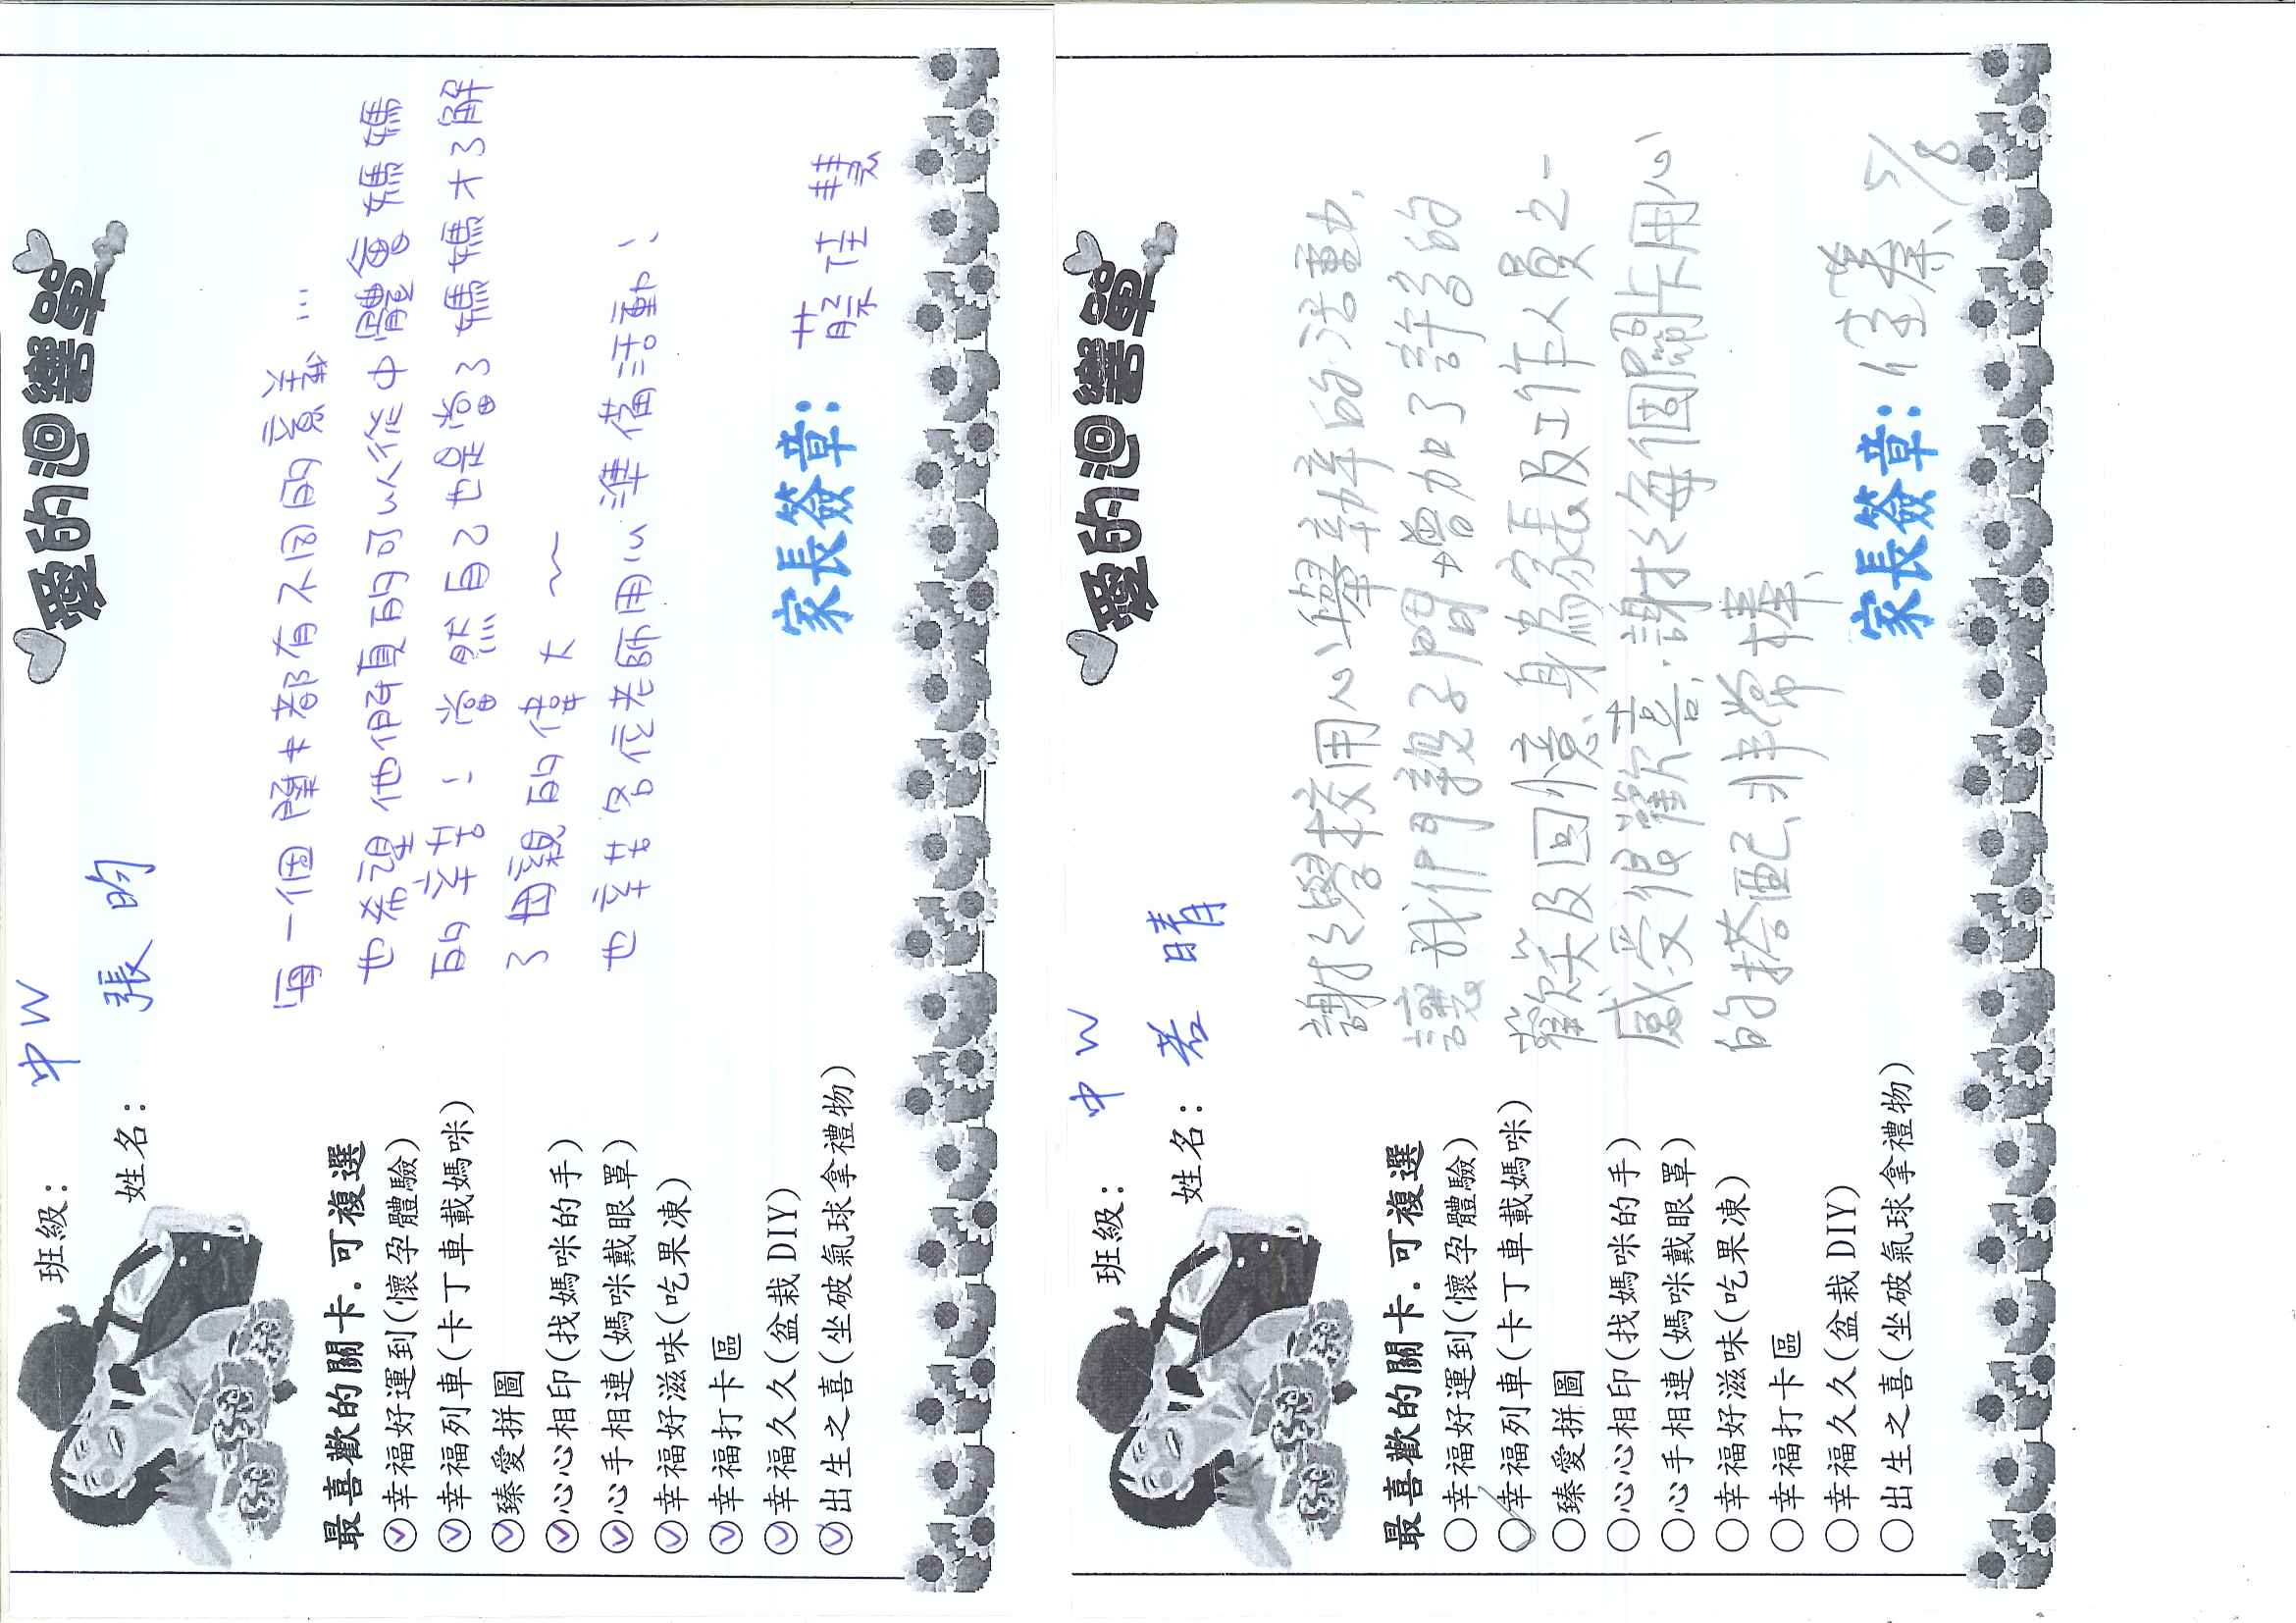 愛的迴響單
班級: 中W
姓名: 張昀
最喜歡的關卡.可複選
幸福好運到(懷孕體驗)
幸福列車(卡丁車載媽咪)
臻愛拼圖
心心相印(找媽咪的手)
心手相連(媽咪戴眼罩)
幸福好滋味(吃果凍)
幸福打卡區
幸福久久(盆栽DIY)
出生之喜(坐破氣球拿禮物)
每一個關卡都有不同的意義…
也希望他們真的可以從中體會媽媽
的辛苦! 當然自己也是當了媽媽才了解
了母親的偉大~
也辛苦各位老師用心準備活動!
家長簽章: 蔡佳慧
愛的迴響單
班級: 中W
姓名: 若晴
最喜歡的關卡.可複選
幸福好運到(懷孕體驗)
幸福列車(卡丁車載媽咪)
臻愛拼圖
心心相印(找媽咪的手)
心手相連(媽咪戴眼罩)
幸福好滋味(吃果凍)
幸福打卡區
幸福久久(盆栽DIY)
出生之喜(坐破氣球拿禮物)
謝於學校用心舉辦的活動,
讓我們親子間增加了許多的
歡笑及回憶、身為家長及工作人員之一
感受很歡喜,謝於每個關卡用心
的搭配、非常棒、
家長簽章: 5/8